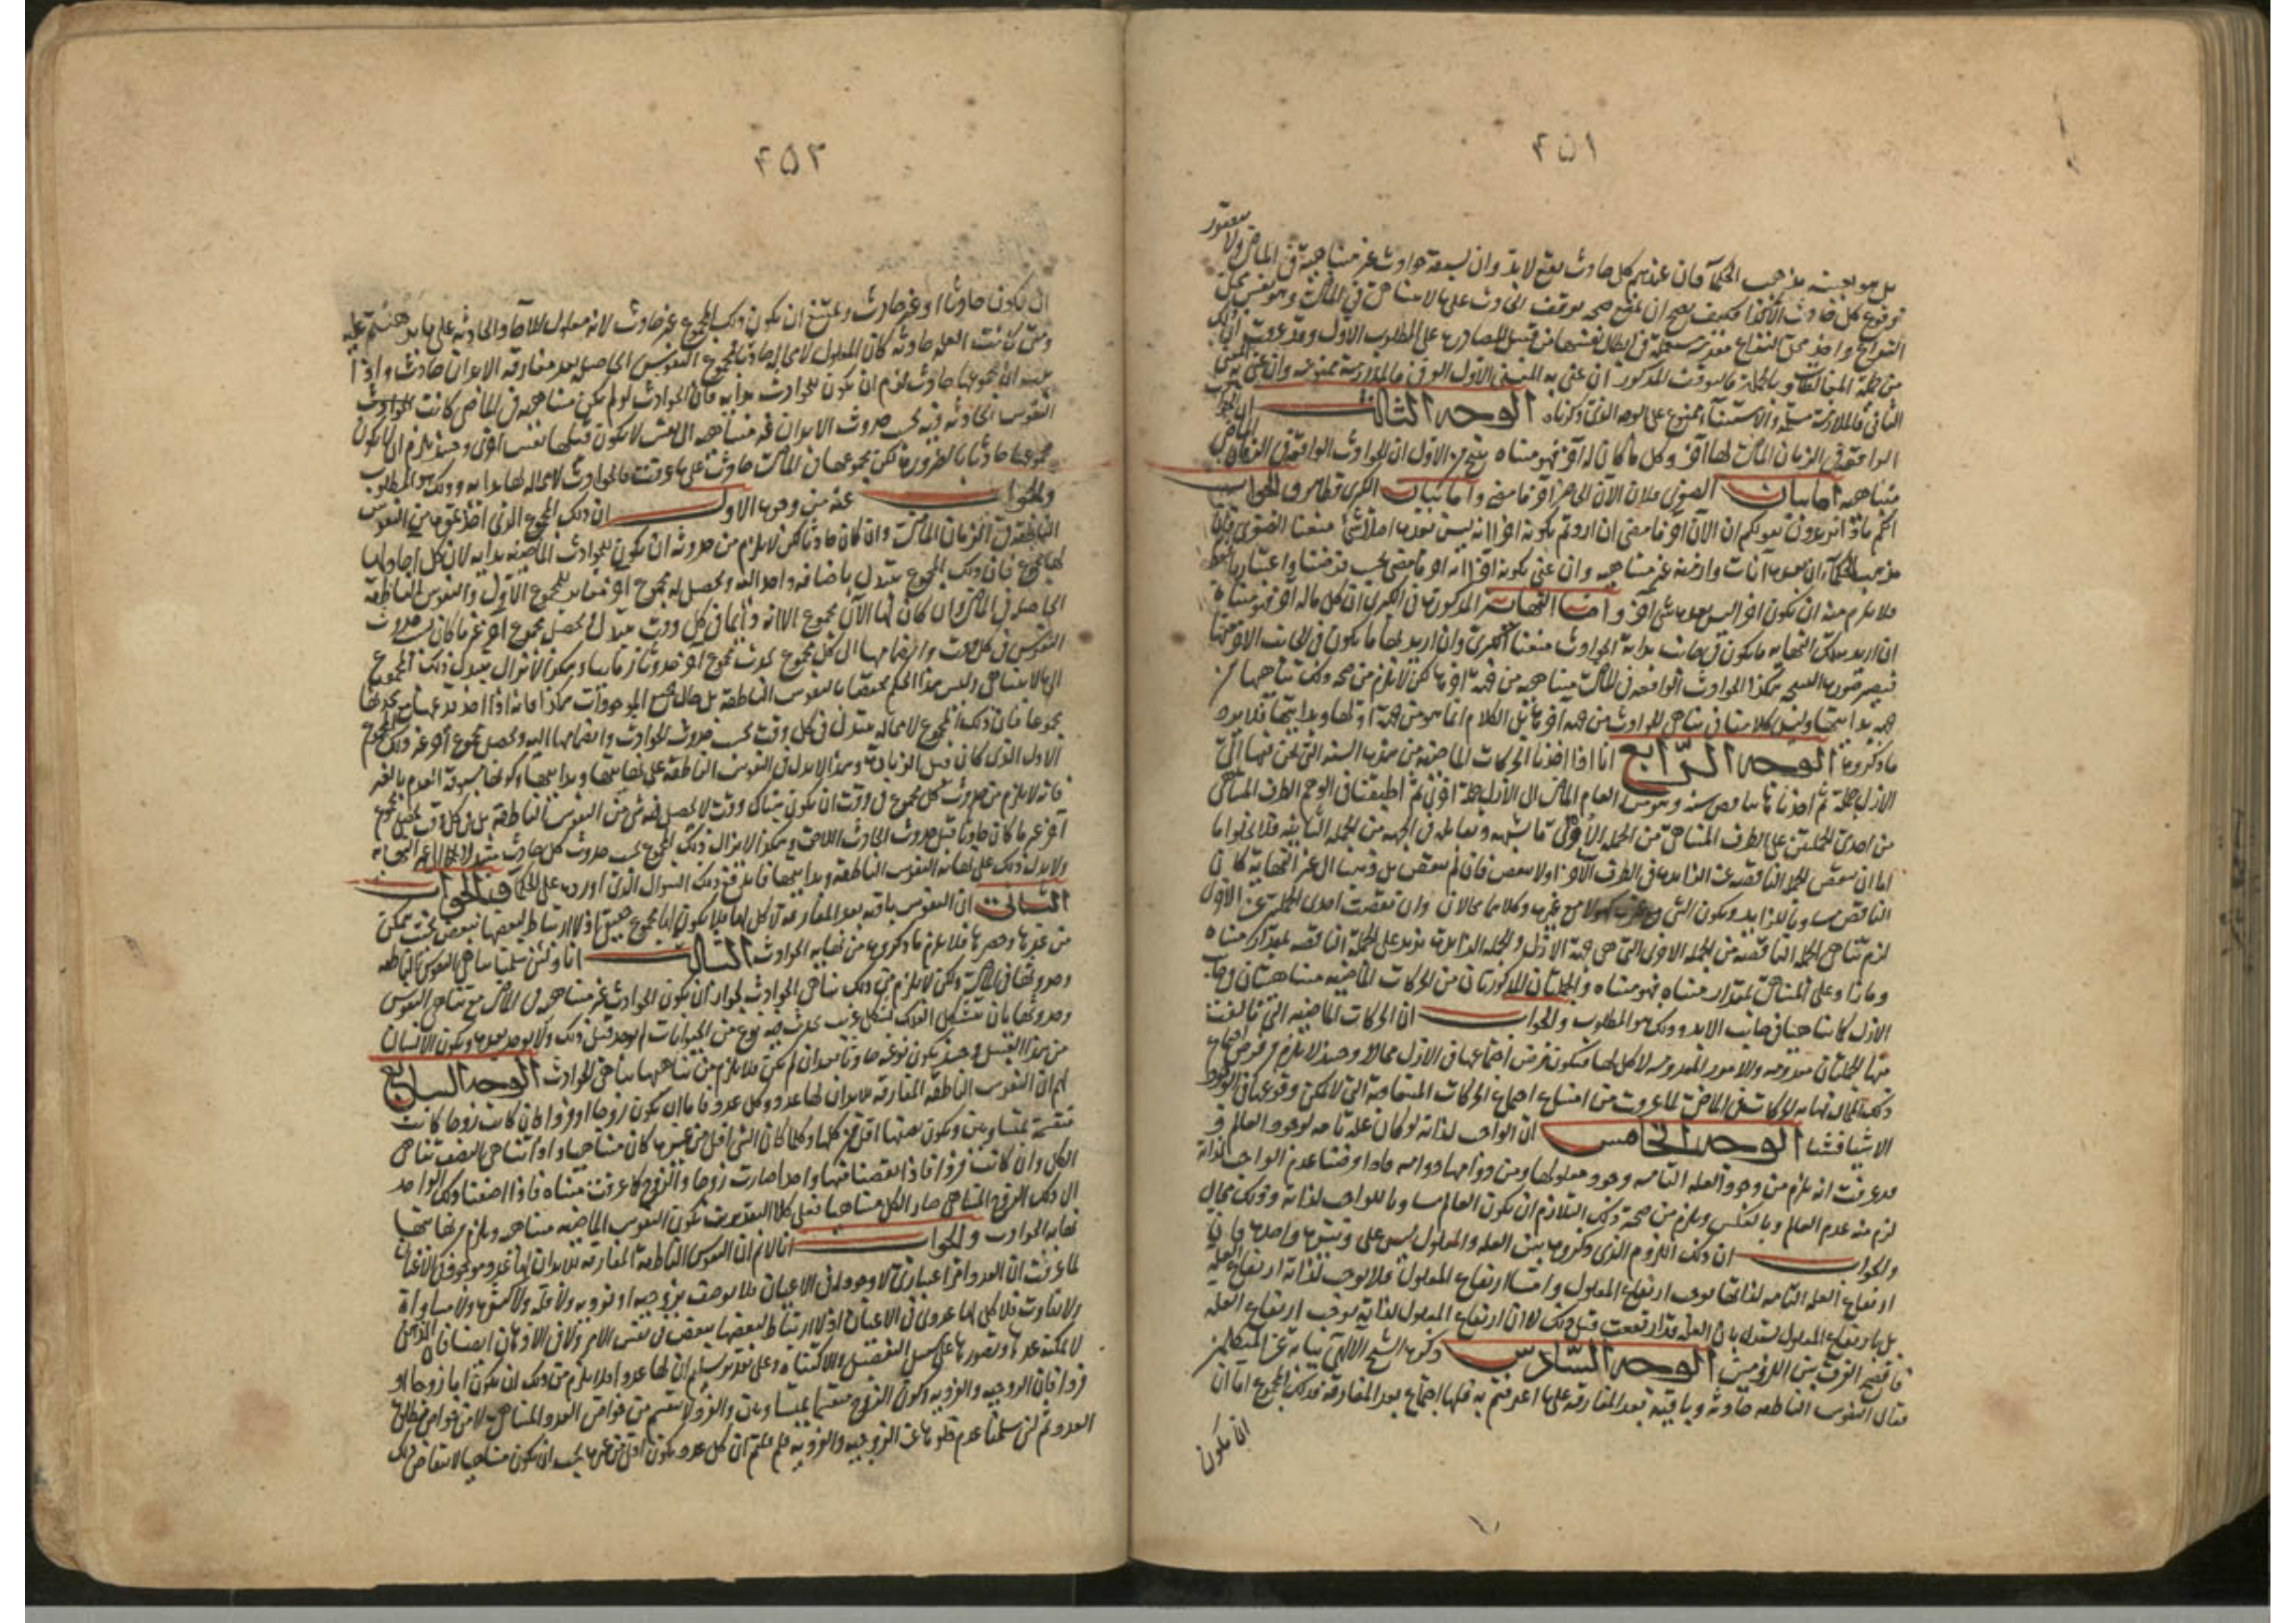 ٤٥١
بل هو بعينه مذهب الحكماء فان عندهم كل حادث يقع لابد وان يسبقه حوادث غير متناهية فى الماضى ولا
وقوع كل حادث فكيف يصح ان يمنع صحة توقف الحادث على ما لا يتناهى فى الماضى وهو نفس محل
النزاع واخذ محل النزاع مقدمة مستعملة فى ابطال نفسها من قبيل المصادرة على المطلوب الاول وقد عرفت
من جملة المغالطات وبالجملة فالتوقف المذكور ان عنى به المعنى الاول العرفى فالملازمة ممنوعة وان عنى به المعنى
الثانى فالملازمة مسلمة والاستثناء ممنوع على الوجه الذى ذكرناه الوجه الثالث ان الحوادث
الواقعة فى الزمان الماضى لها آخر وكل ما كان له آخر فهو متناه ينتج من الاول ان الحوادث الواقعة فى الزمان الماضى
متناهية اما بيان الصغرى فلان الآن الحاضر آخر ما مضى واما بيان الكبرى فظاهر والجواب
انكم ماذا تريدون بقولكم ان الآن آخر ما مضى ان اردتم بكونه آخرا انه ليس بعده اصلا شئ منعنا الصغرى فان
مذهب الحكماء ان بعده آنات وازمنة غير متناهية وان عنى بكونه آخرا انه آخر ما مضى بحسب فرضنا واعتبارنا
فلا يلزم منه ان يكون آخر ليس بعده شئ آخر واما النهاية المذكورة فى الكبرى ان كل ما له آخر فهو متناه
ان اريد بتلك النهاية ما يكون فى جانب بداية الحوادث منعنا الكبرى وان اريد بها ما يكون فى الجانب الآخر منها
فيصير صورة النتيجة هكذا الحوادث الواقعة فى الماضى متناهية من جهة آخرها لكن لا يلزم من صحة ذلك تناهيها من
جهة بدايتها وليس كلامنا فى تناهى الحوادث من جهة آخرها بل الكلام انما هو من جهة اولها وبدايتها فلا يرد
ما ذكروه الوجه الرابع انا اذا اخذنا الحركات الماضية من هذه السنة التى نحن فيها الى
الازل جملة ثم اخذنا ما يناقص سنة وهو من العام الماضى الى الازل جملة اخرى ثم اطبقنا فى الوهم الطرف المتناهى
من احدى الجملتين على الطرف المتناهى من الجملة الاخرى ما يشبهه ونقابله فى الجهة من الجملة الثانية فلا يخلو اما
اما ان ينقص الجملة الناقصة عن الزايدة فى الطرف الآخر او لا ينقص فان لم ينقص بل ذهب الى غير النهاية كان
الناقص مساويا للزايد ويكون الشئ مع غيره كهو لا مع غيره وكلاهما محالان وان نقصت احدى الجملتين عن الاخرى
لزم تناهى الجملة الناقصة من الجملة الاخرى التى هى جهة الازل والجملة الزايدة تزيد على الجملة الناقصة بمقدار متناه
وما زاد على المتناهى بمقدار متناه فهو متناه والجملتان المذكورتان من الحركات الماضية متناهيتان فى جانب
الازل كما تناهتا فى جانب الابد وذلك هو المطلوب والجواب ان الحركات الماضية التى تألفت
منها الجملتان معدومة والامور المعدومة لا كل لها فيكون فرض اجتماعها فى الازل محالا وحينئذ لا يلزم من فرض اجتماع
ذلك المحال نهاية الحركات فى الماضى لما عرفت من امتناع اجتماع الحركات المتعاقبة التى لا يمكن وقوعها فى الوجود
الا شيئا فشيئا الوجه الخامس ان الواجب لذاته لو كان علة تامة لوجود العالم و
قد عرفت انه يلزم من وجود العلة التامة وجود معلولها ومن دوامها دوامه فاذا فرضنا عدم الواجب لذاته
لزم منه عدم العالم وبالعكس ويلزم من صحة ذلك التلازم ان يكون العالم مساويا للواجب لذاته وذلك محال
والجواب ان ذلك اللزوم الذى ذكروه بين العلة والمعلول ليس على وتيرة واحدة فان
ارتفاع العلة التامة لذاتها يوجب ارتفاع المعلول واما ارتفاع المعلول فلا يوجب لذاته ارتفاع العلة
بل بارتفاع المعلول يستدل بان العلة قد ارتفعت قبل ذلك لا ان ارتفاع المعلول لذاته يوجب ارتفاع العلة
فاتضح الفرق بين اللزومين الوجه السادس ذكره الشيخ الالهى نيابة عن المتكلمين
فقال النفوس الناطقة حادثة وباقية بعد المفارقة على ما اعترفتم به فلها اجتماع بعد المفارقة فذلك المجموع اما ان
ان يكون
٤٥٢
ان يكون حادثا او غير حادث ويمتنع ان يكون ذلك المجموع غير حادث لانه معلول للآحاد الحادثة على ما برهنتم عليه
ومتى كانت العلة حادثة كان المعلول لا محالة حادثا فمجموع النفوس الحاصل بعد مفارقة الابدان حادث واذا
ان مجموعها حادث لزم ان يكون للحوادث بداية فان الحوادث لو لم يكن متناهية فى الماضى كانت
النفوس الحادثة فيه بحسب حدوث الابدان غير متناهية الى نفس لا يكون قبلها نفس اخرى وحينئذ يلزم ان لا يكون
مجموعها حادثا بالضرورة لكن مجموعها فى الماضى حادث على ما عرفت فالحوادث لا محالة لها بداية وذلك هو المطلوب
والجواب عنه من وجوه الاول ان ذلك المجموع الذى اخذتموه من النفوس
الناطقة فى الزمان الماضى وان كان حادثا لكن لا يلزم من حدوثه ان يكون للحوادث الماضية بداية لان كل آحاد لها
لها مجموع فان ذلك المجموع يتبدل باضافة واحد اليه ويحصل له مجموع آخر مغاير للمجموع الاول والنفوس الناطقة
الحاصلة فى الماضى وان كان لها الآن مجموع الا انه دائما فى كل وقت يتبدل ويحصل مجموع آخر غير ما كان بسبب حدوث
النفوس فى كل وقت وانضمامها الى كل مجموع يحدث مجموع آخر حدوثا زمانيا وهكذا لا يزال يتبدل ذلك المجموع
الى ما لا يتناهى وليس هذا الحكم مختصا بالنفوس الناطقة بل حال جميع الموجودات هكذا فانه اذا اخذ
مجموعا فان ذلك المجموع لا محالة يتبدل فى كل وقت بحسب حدوث الحوادث وانضمامها اليه ويحصل مجموع آخر غير ذلك المجموع
الاول الذى كان قبل الزيادة وهذا لا يدل فى النفوس الناطقة على نهايتها وبدايتها وكونها مسبوقة العدم بالغير
فانه لا يلزم من حدوث كل مجموع فى وقت ان يكون هناك وقت لا يحصل فيه شئ من النفوس الناطقة بل فى كل وقت يحصل مجموع
آخر غير ما كان حادثا قبل حدوث الحادث اللاحق وهكذا لا يزال ذلك المجموع بحسب حدوث كل حادث يتبدل الى غير النهاية
ولا يدل ذلك على نهاية النفوس الناطقة وبدايتها فاندفع ذلك السؤال الذى اورده على الحكماء والجواب
الثانى ان النفوس باقية بعد المفارقة لا كل لها فلا يكون لها مجموع حقيقى اذ لا ارتباط لبعضها ببعض بحيث يمكن
من عدها وحصرها فلا يلزم ما ذكروه من نهاية الحوادث الثالث انا ولئن سلمنا تناهى النفوس الناطقة
وحدوثها فى الماضى ولكن لا يلزم من ذلك تناهى الحوادث لجواز ان يكون الحوادث غير متناهية فى الماضى مع تناهى النفوس
وحدوثها بان يتشكل الفلك بشكل غريب يحدث فيه نوع من الحيوانات لم يوجد قبل ذلك ولا يوجد بعده ويكون الانسان
من هذا القبيل وحينئذ يكون نوعه حادثا بعد ان لم يكن فلا يلزم من تناهيها تناهى الحوادث الوجه السابع
لهم ان النفوس الناطقة المفارقة للابدان لها عدد وكل عدد فاما ان يكون زوجا او فردا فان كانت زوجا كانت
منقسمة بمتساويين ويكون نصفها اقل من كلها وكلما كان الشئ اقل من غيره كان متناهيا واذا تناهى النصف تناهى
الكل وان كانت فردا فاذا انقصنا منها واحدا صارت زوجا والزوج كما عرفت متناه فاذا اضفنا ذلك الواحد
الى ذلك الزوج المتناهى صار الكل متناهيا فعلى كلا التقديرين تكون النفوس الماضية متناهية ويلزم من نهايتها
نهاية الحوادث والجواب انا لا نسلم ان النفوس الناطقة المفارقة للابدان لها عدد موجود فى الاعيان
لما عرفت ان العدد امر اعتبارى لا وجود له فى الاعيان فلا يوصف بزوجية او فردية ولا قلة ولا كثرة ولا مساواة
ولا تفاوت فلا كل لها عددى فى الاعيان اذ لا ارتباط لبعضها ببعض فى نفس الامر ولا فى الاذهان ايضا فان الذهن
لا يمكنه عدها وتصورها على سبيل التفصيل والاكتناه وعلى تقدير تسليم ان لها عددا فلا يلزم من ذلك ان يكون اما زوجا او
فردا فان الزوجية والفردية وكون الزوج منقسما بمتساويين والفرد لا ينقسم من خواص العدد المتناهى لا من خواص مطلق
العدد ثم لئن سلمنا عدم خلوها عن الزوجية والفردية فلم قلتم ان كل عدد يكون اقل من غيره يجب ان يكون متناهيا لانتقاض ذلك